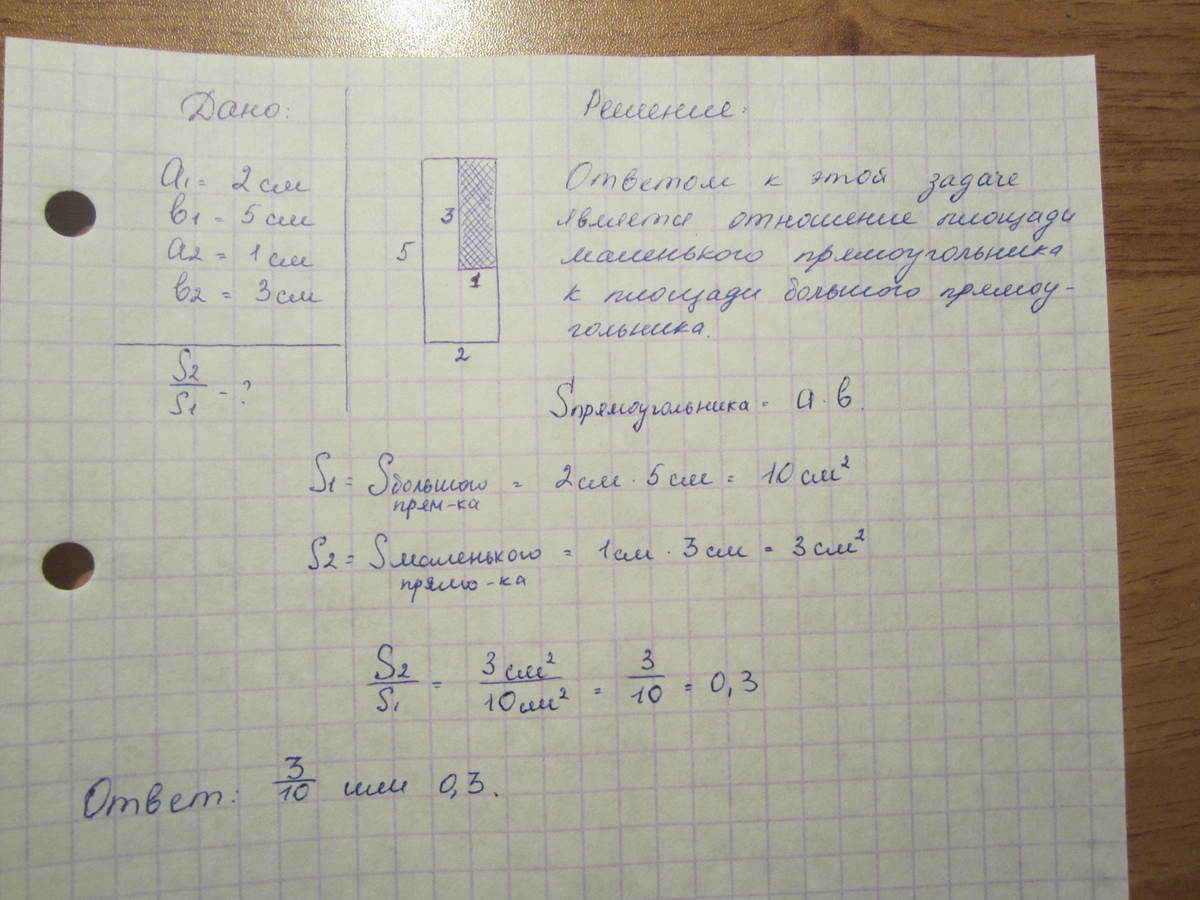 Дано:
a₁ = 2 см
в₁ = 5 см
a₂ = 1 см
в₂ = 3 см
S₂/S₁ - ?
3
5
1
2
Решение:
Ответом к этой задаче
является отношение площади
маленького прямоугольника
к площади большого прямоу-
гольника.
Sпрямоугольника = a · в.
S₁ = Sбольшого прям-ка = 2 см · 5 см = 10 см²
S₂ = Sмаленького прямо-ка = 1 см · 3 см = 3 см²
S₂/S₁ = 3 см²/10 см² = 3/10 = 0,3
Ответ: 3/10 или 0,3.